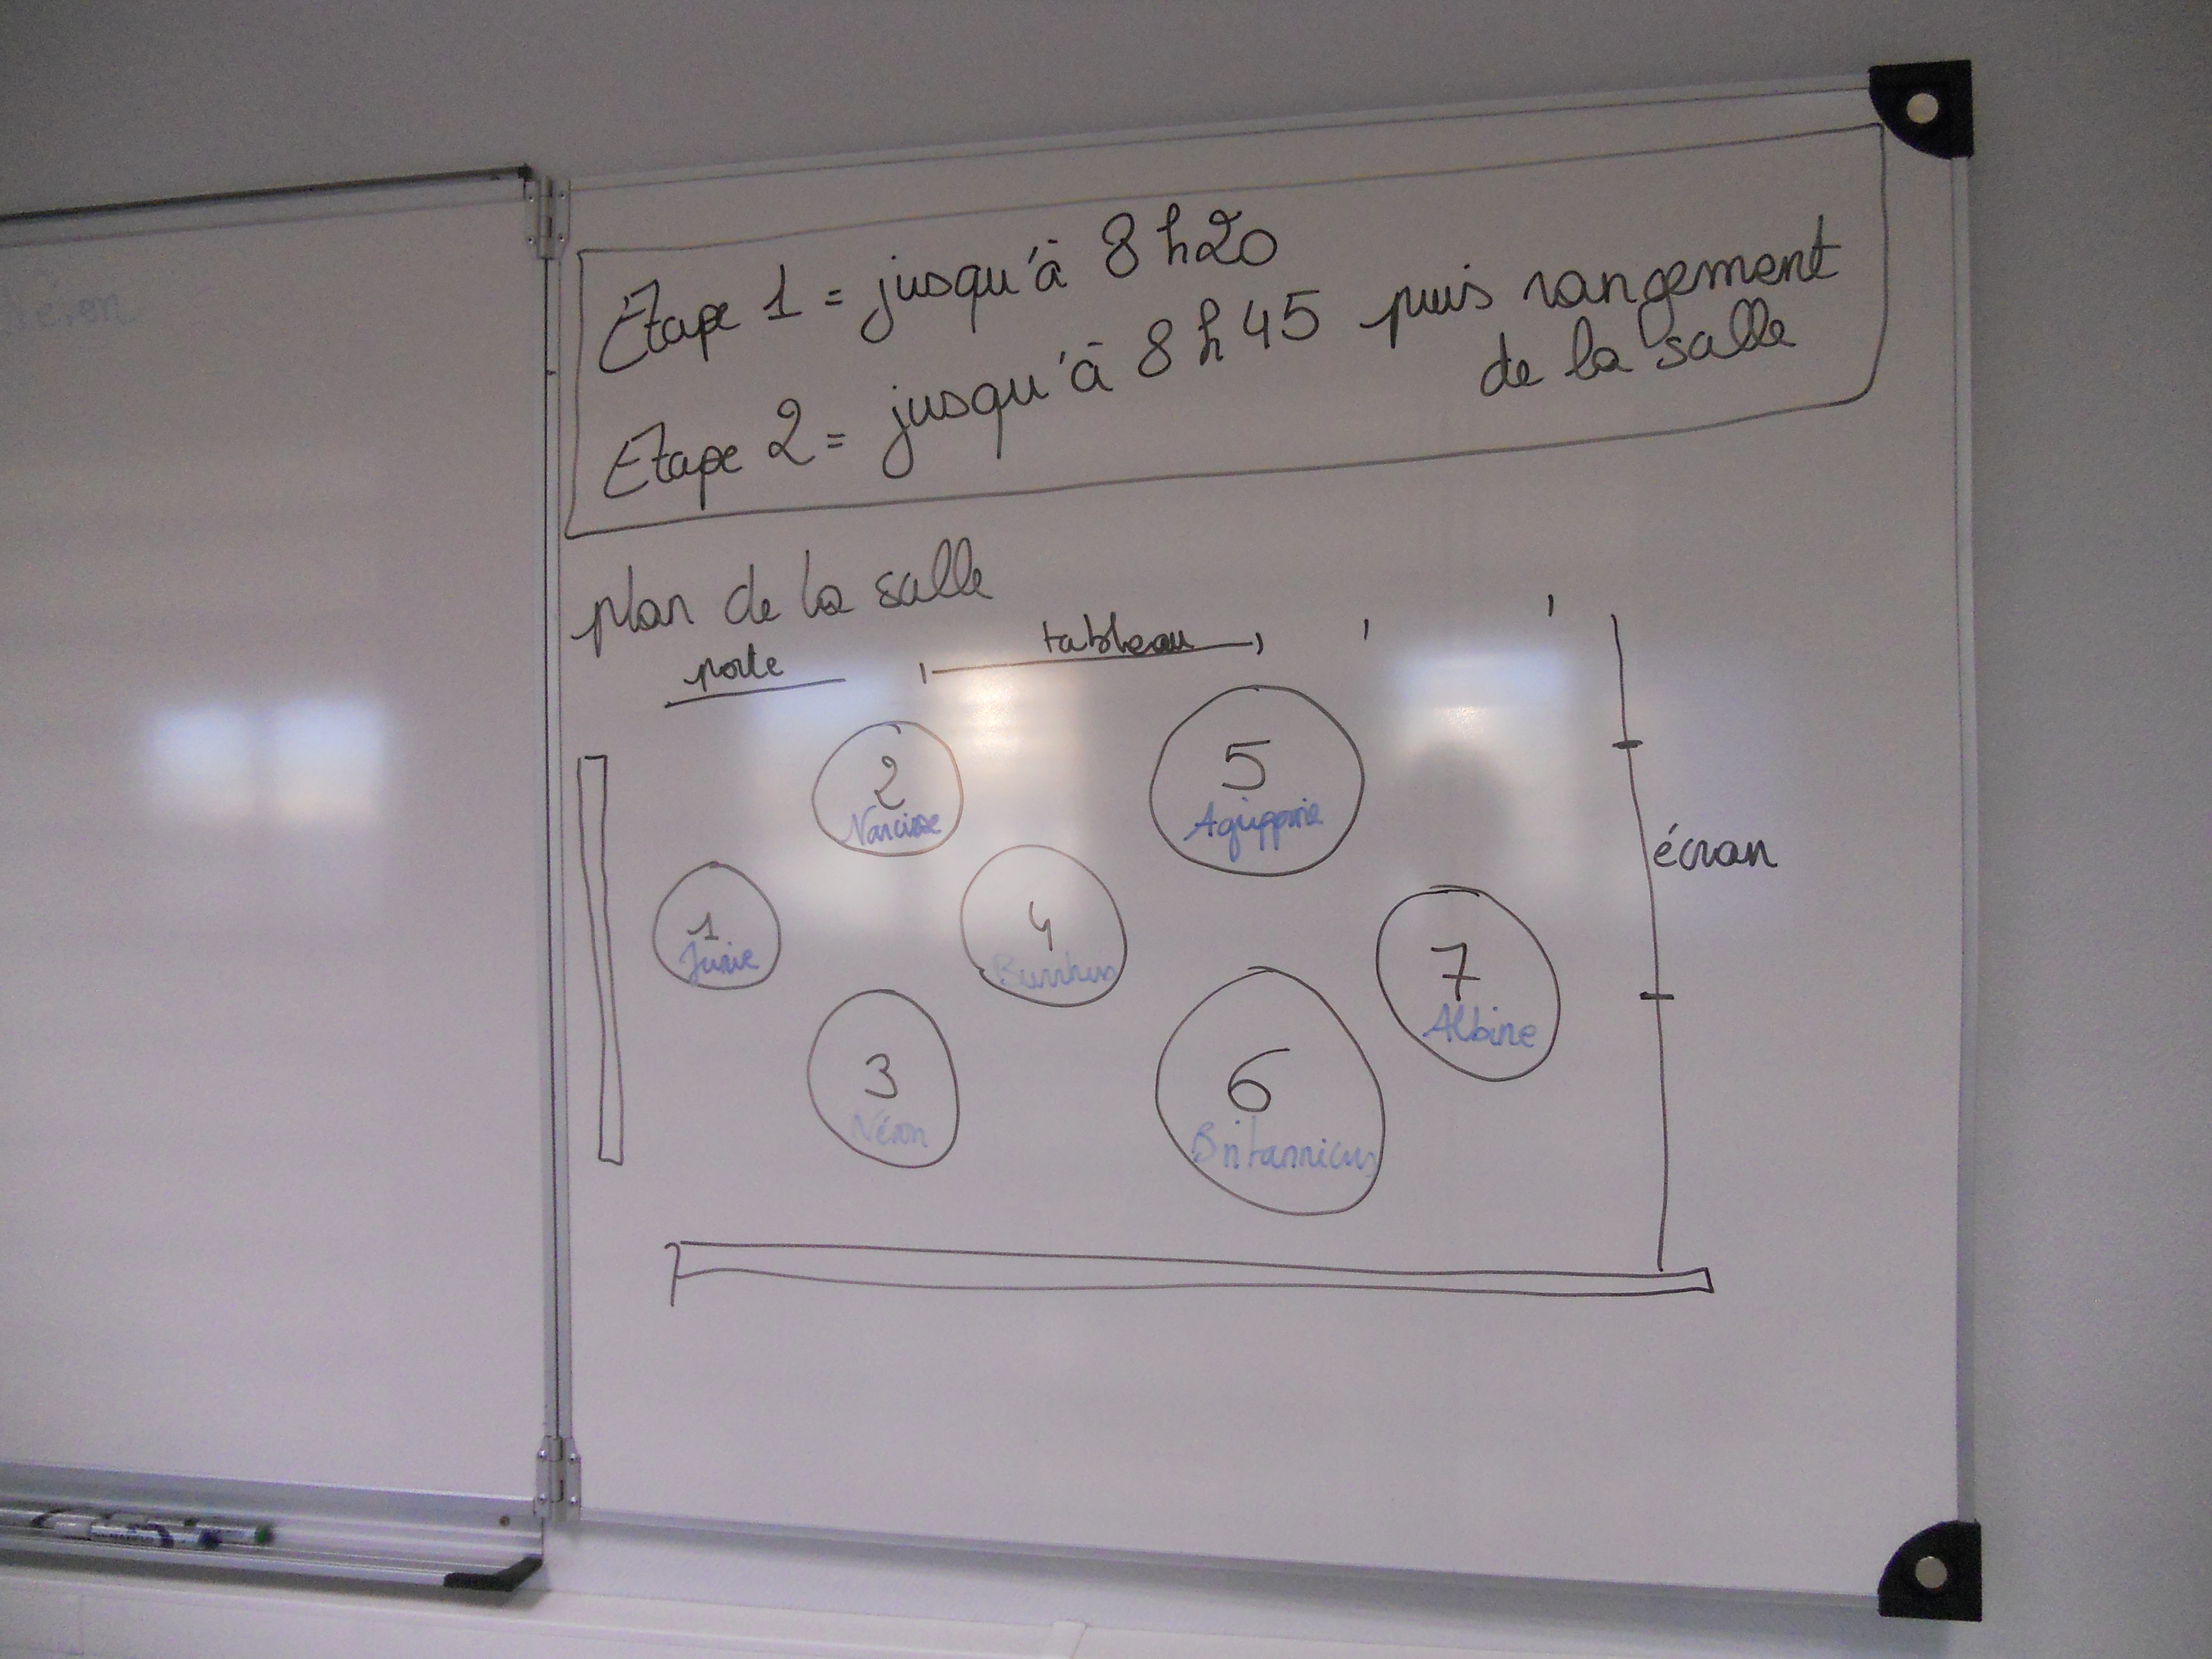 Etape 1 = jusqu'à 8h20
Etape 2 = jusqu'à 8h45 puis rangement
de la salle
plan de la salle
porte
tableau
2
Narcisse
5
Agrippine
écran
1
Junie
4
Burrhus
7
Albine
3
Néron
6
Britannicus